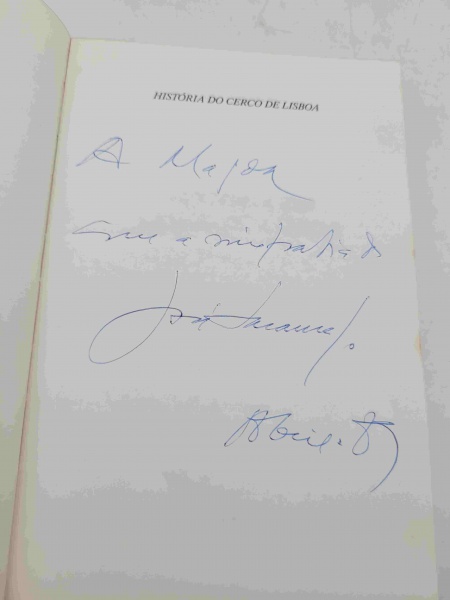 HISTÓRIA DO CERCO DE LISBOA
A Magda
com a simpatia de
José Saramago